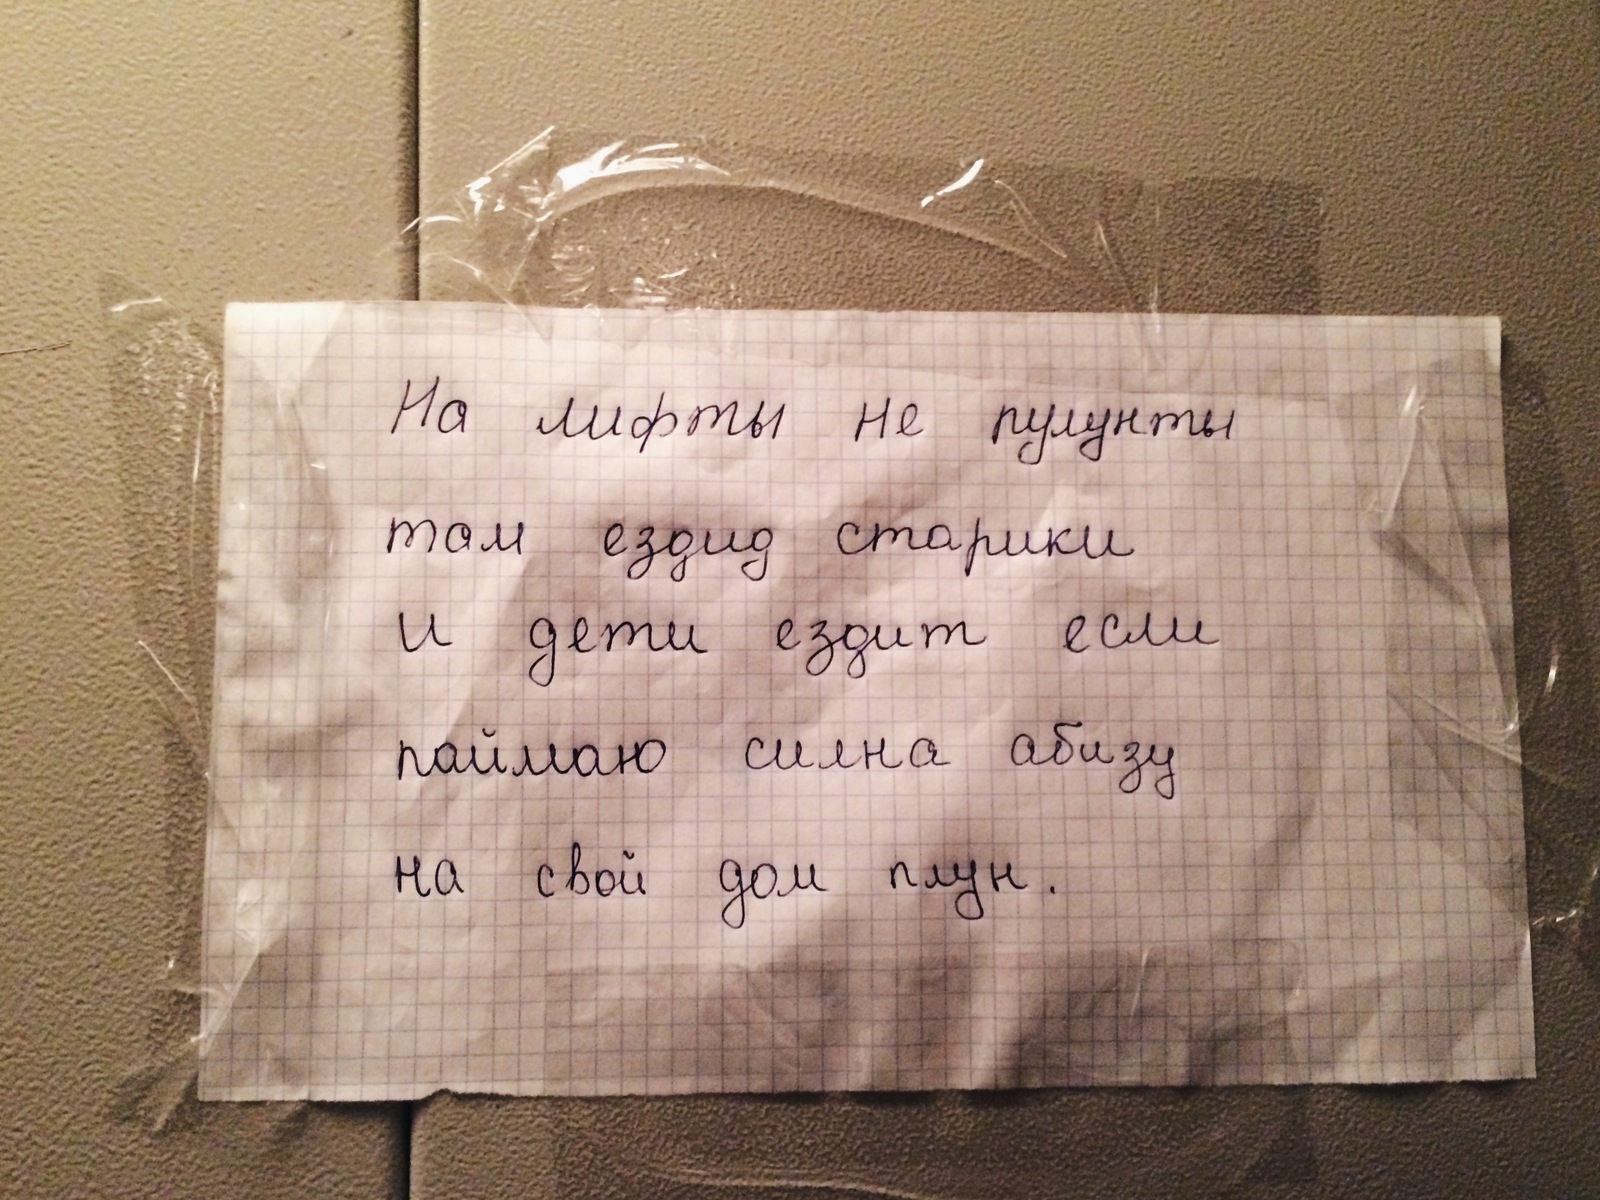 На лифты не пулунты
там ездид старики
и дети ездит если
паймаю силна абизу
на свой дом плун.